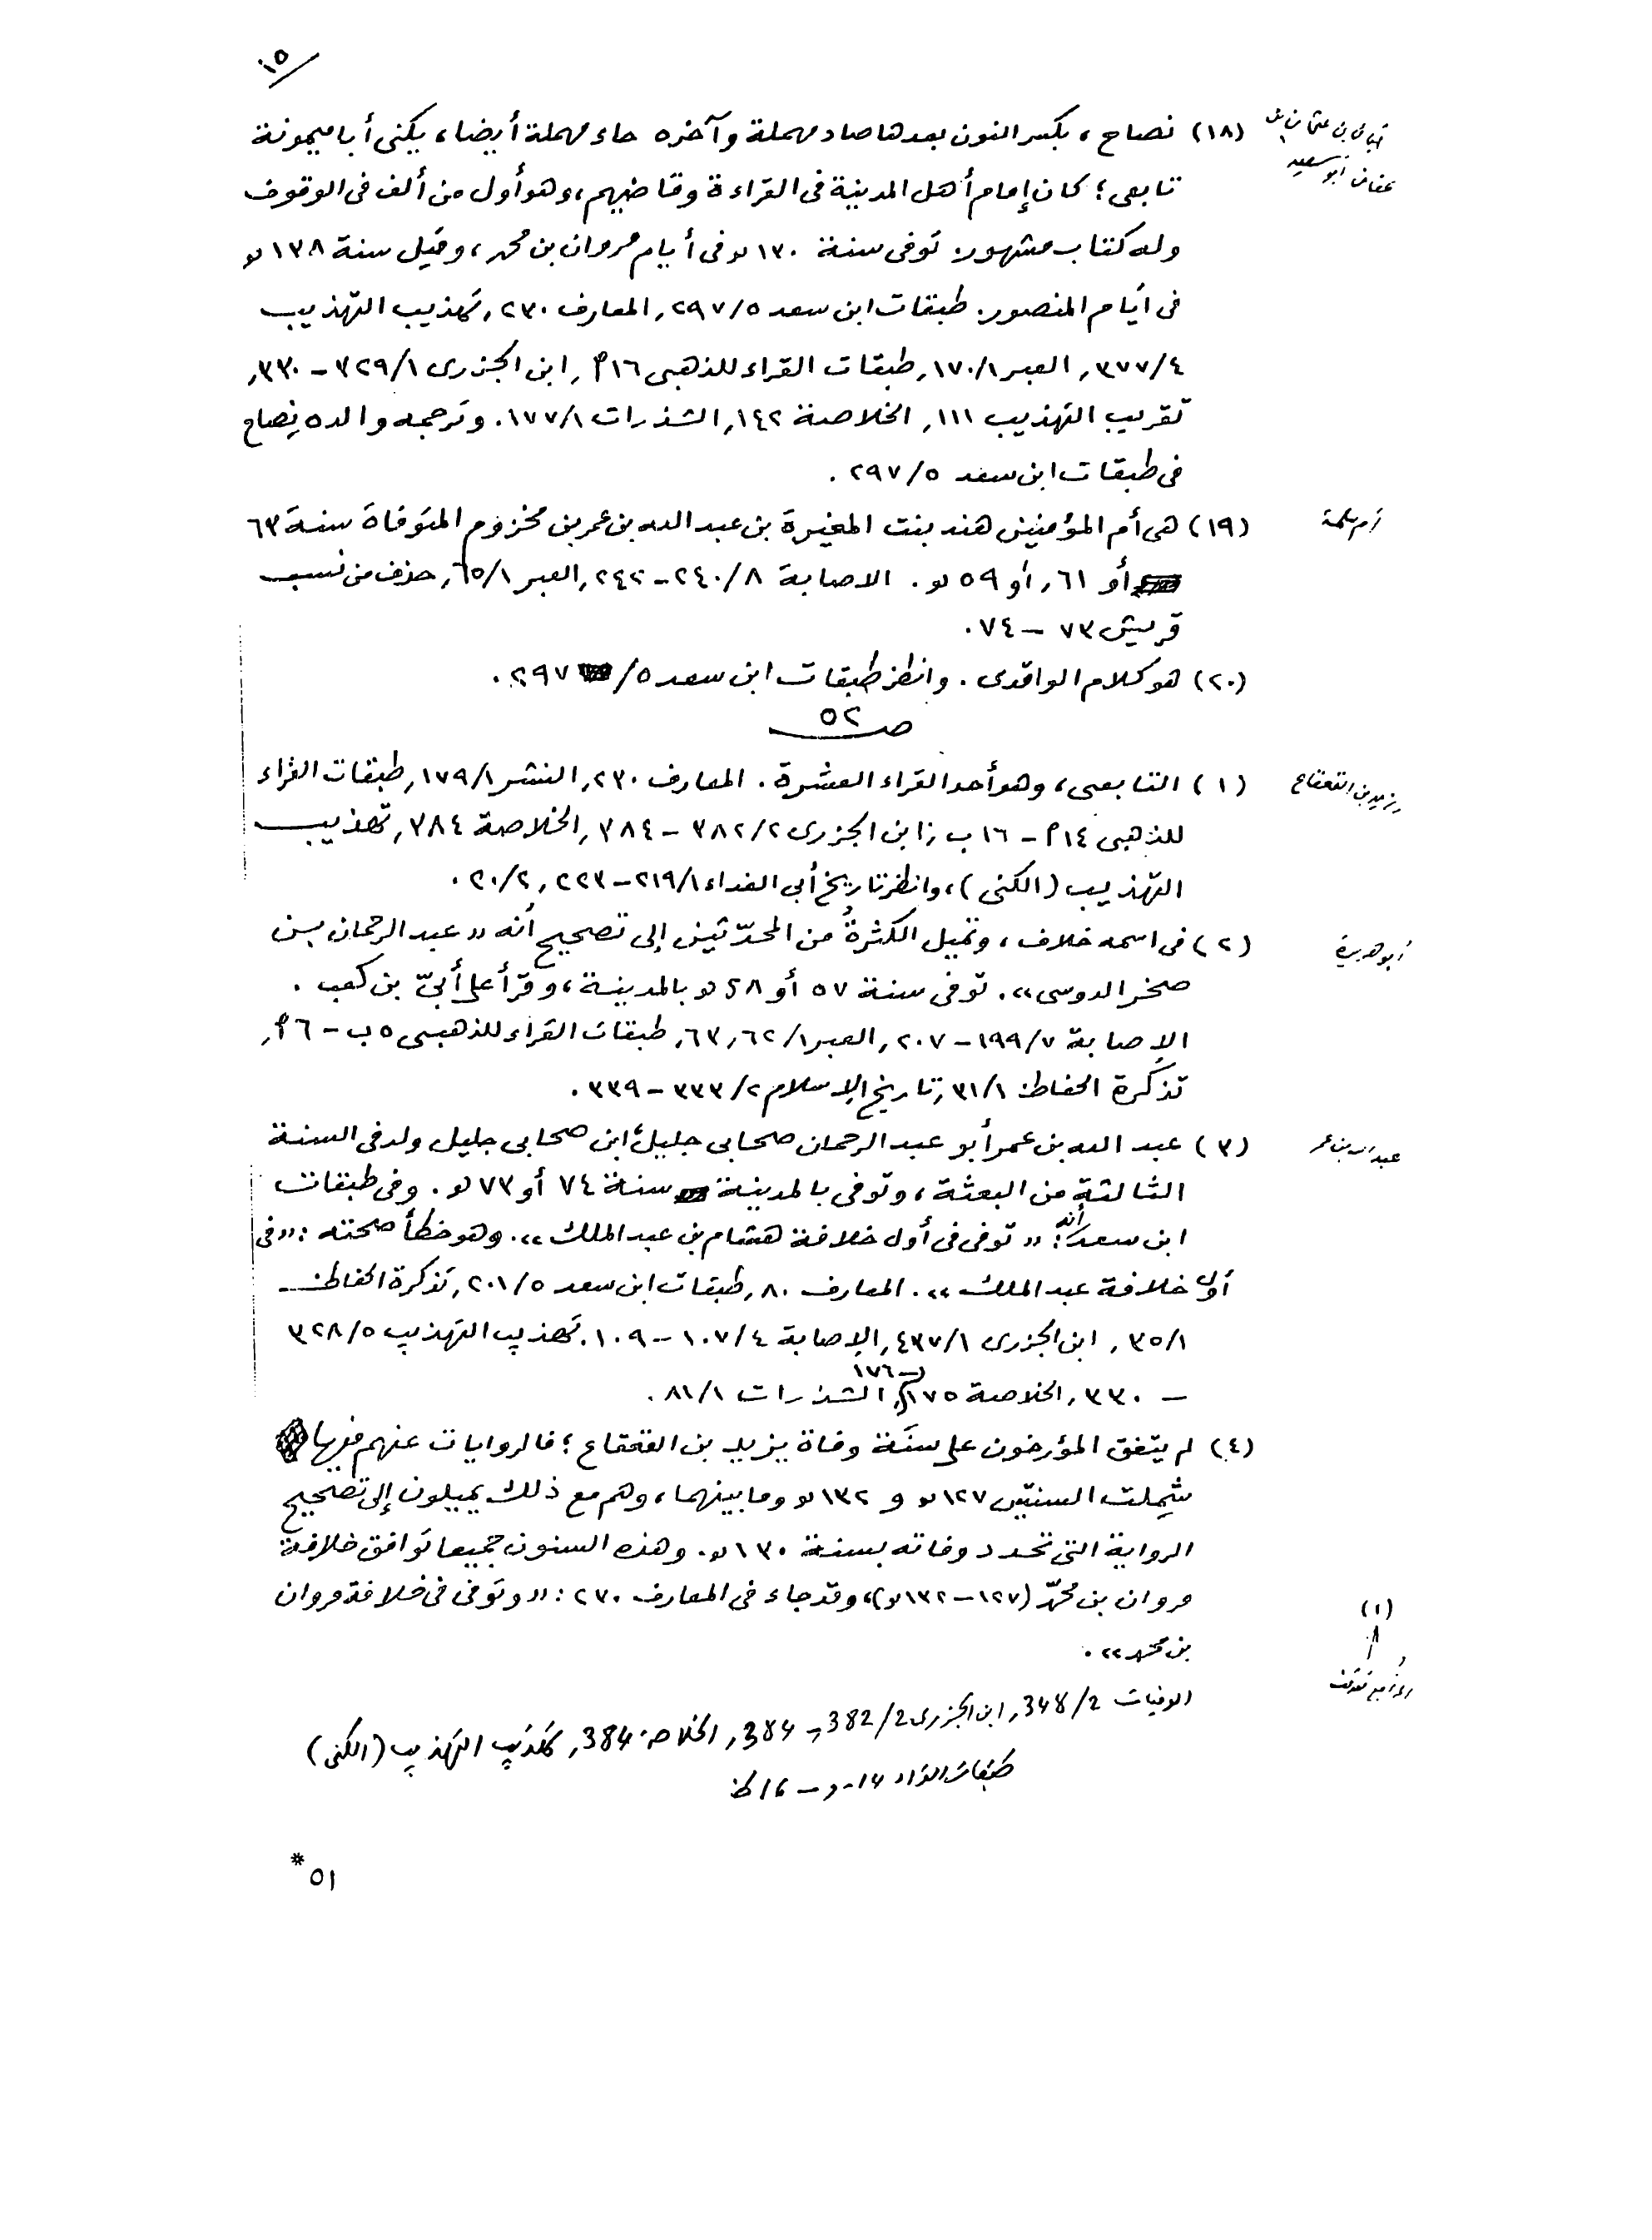 ١٥
(١٨) نصاح، بكسر النون بعدها صاد مهملة وآخره حاء مهملة أيضا، يكنى أبا ميمونة
أبان بن عثمان بن
عفان أبو سعيد
تابعى؛ كان إمام أهل المدينة فى القراءة وقاضيهم، وهو أول من ألف فى الوقوف
وله كتاب مشهور. توفى سنة ١٣٠ هـ فى أيام مروان بن محمد، وقيل سنة ١٣٨ هـ
فى أيام المنصور. طبقات ابن سعد ٢٩٧/٥, المعارف ٢٣٠, تهذيب التهذيب
٣٧٧/٤, العبر ١٧٠/١, طبقات القراء للذهبى ١٦ أ, ابن الجزرى ٣٢٩/١ – ٣٣٠,
تقريب التهذيب ١١١, الخلاصة ١٤٢, الشذرات ١٧٧/١. وترجمه والده نِصاح
فى طبقات ابن سعد ٢٩٧/٥.
(١٩) هى أم المؤمنين هند بنت المغيرة بن عبد الله بن عمر بن مخزوم المتوفاة سنة ٦٣
أم سلمة
أو ٦١, أو ٥٩ هـ. الاصابة ٢٤٠/٨ – ٢٤٢, العبر ٦٥/١, حذف من نسب
قريش ٧٣ – ٧٤.
(٢٠) هو كلام الواقدى. وانظر طبقات ابن سعد ٥/ ٢٩٧.
صـ ٥٢
(١) التابعى، وهو أحد القراء العشرة. المعارف ٢٣٠, النشر ١٧٩/١, طبقات القراء
يزيد بن القعقاع
للذهبى ١٤ أ – ١٦ ب, ابن الجزرى ٣٨٢/٢ – ٣٨٤, الخلاصة ٣٨٤, تهذيب
التهذيب (الكنى)، وانظر تاريخ أبى الفداء ٢١٩/١ – ٢٢٣, ٢٠/٢.
(٢) فى اسمه خلاف، وتميل الكثرةُ من المحدّثين إلى تصحيح أنه «عبد الرحمان بن
أبو هريرة
صخر الدوسى». توفى سنة ٥٧ أو ٥٨ هـ بالمدينة، وقرأ على أبىّ بن كعب.
الإصابة ١٩٩/٧ – ٢٠٧, العبر ٦٢/١, ٦٣, طبقات القراء للذهبى ٥ ب – ٦ أ,
تذكرة الحفاظ ٣١/١, تاريخ الإسلام ٣٣٣/٢ – ٣٣٩.
(٣) عبد الله بن عمر أبو عبد الرحمان صحابى جليل، ابن صحابى جليل ولد فى السنة
عبد الله بن عمر
الثالثة من البعثة، وتوفى بالمدينة سنة ٧٤ أو ٧٣ هـ. وفى طبقات
ابن سعد أنه: «توفى فى أول خلافة هشام بن عبد الملك». وهو خطأ صحته: «فى
أول خلافة عبد الملك». المعارف ٨٠, طبقات ابن سعد ٢٠١/٥, تذكرة الحفاظ
٣٥/١, ابن الجزرى ٤٣٧/١, الإصابة ١٠٧/٤ – ١٠٩, تهذيب التهذيب ٣٢٨/٥
– ٣٣٠, الخلاصة ١٧٥ – ١٧٦, الشذرات ٨١/١.
(٤) لم يتفق المؤرخون على سنة وفاة يزيد بن القعقاع؛ فالروايات عنهم فيها
شَمِلت السنتين ١٢٧ هـ و ١٣٢ هـ وما بينهما، وهم مع ذلك يميلون إلى تصحيح
الرواية التى تحدد وفاته بسنة ١٣٠ هـ. وهذه السنون جميعا توافق خلافة
مروان بن محمّد (١٢٧ – ١٣٢ هـ)، وقد جاء فى المعارف ٢٧٠: «وتوفى فى خلافة مروان
بن محمد».
(١)
الوفيات 348/2, ابن الجزرى 382/2 – 384, الخلاصة 384, تهذيب التهذيب (الكنى)
طبقات القراء 14 و – 16 ظ
* ٥١